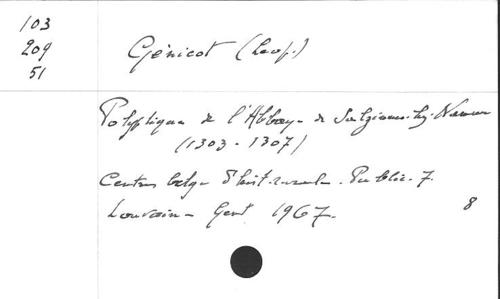 103
209
51
Génicot (Léop.)
Polyptique de l'Abbaye de Salzinnes-lez-Namur
(1303-1307)
Centre belge d'hist. rurale. Public. 7.
Louvain - Gent 1967.
8